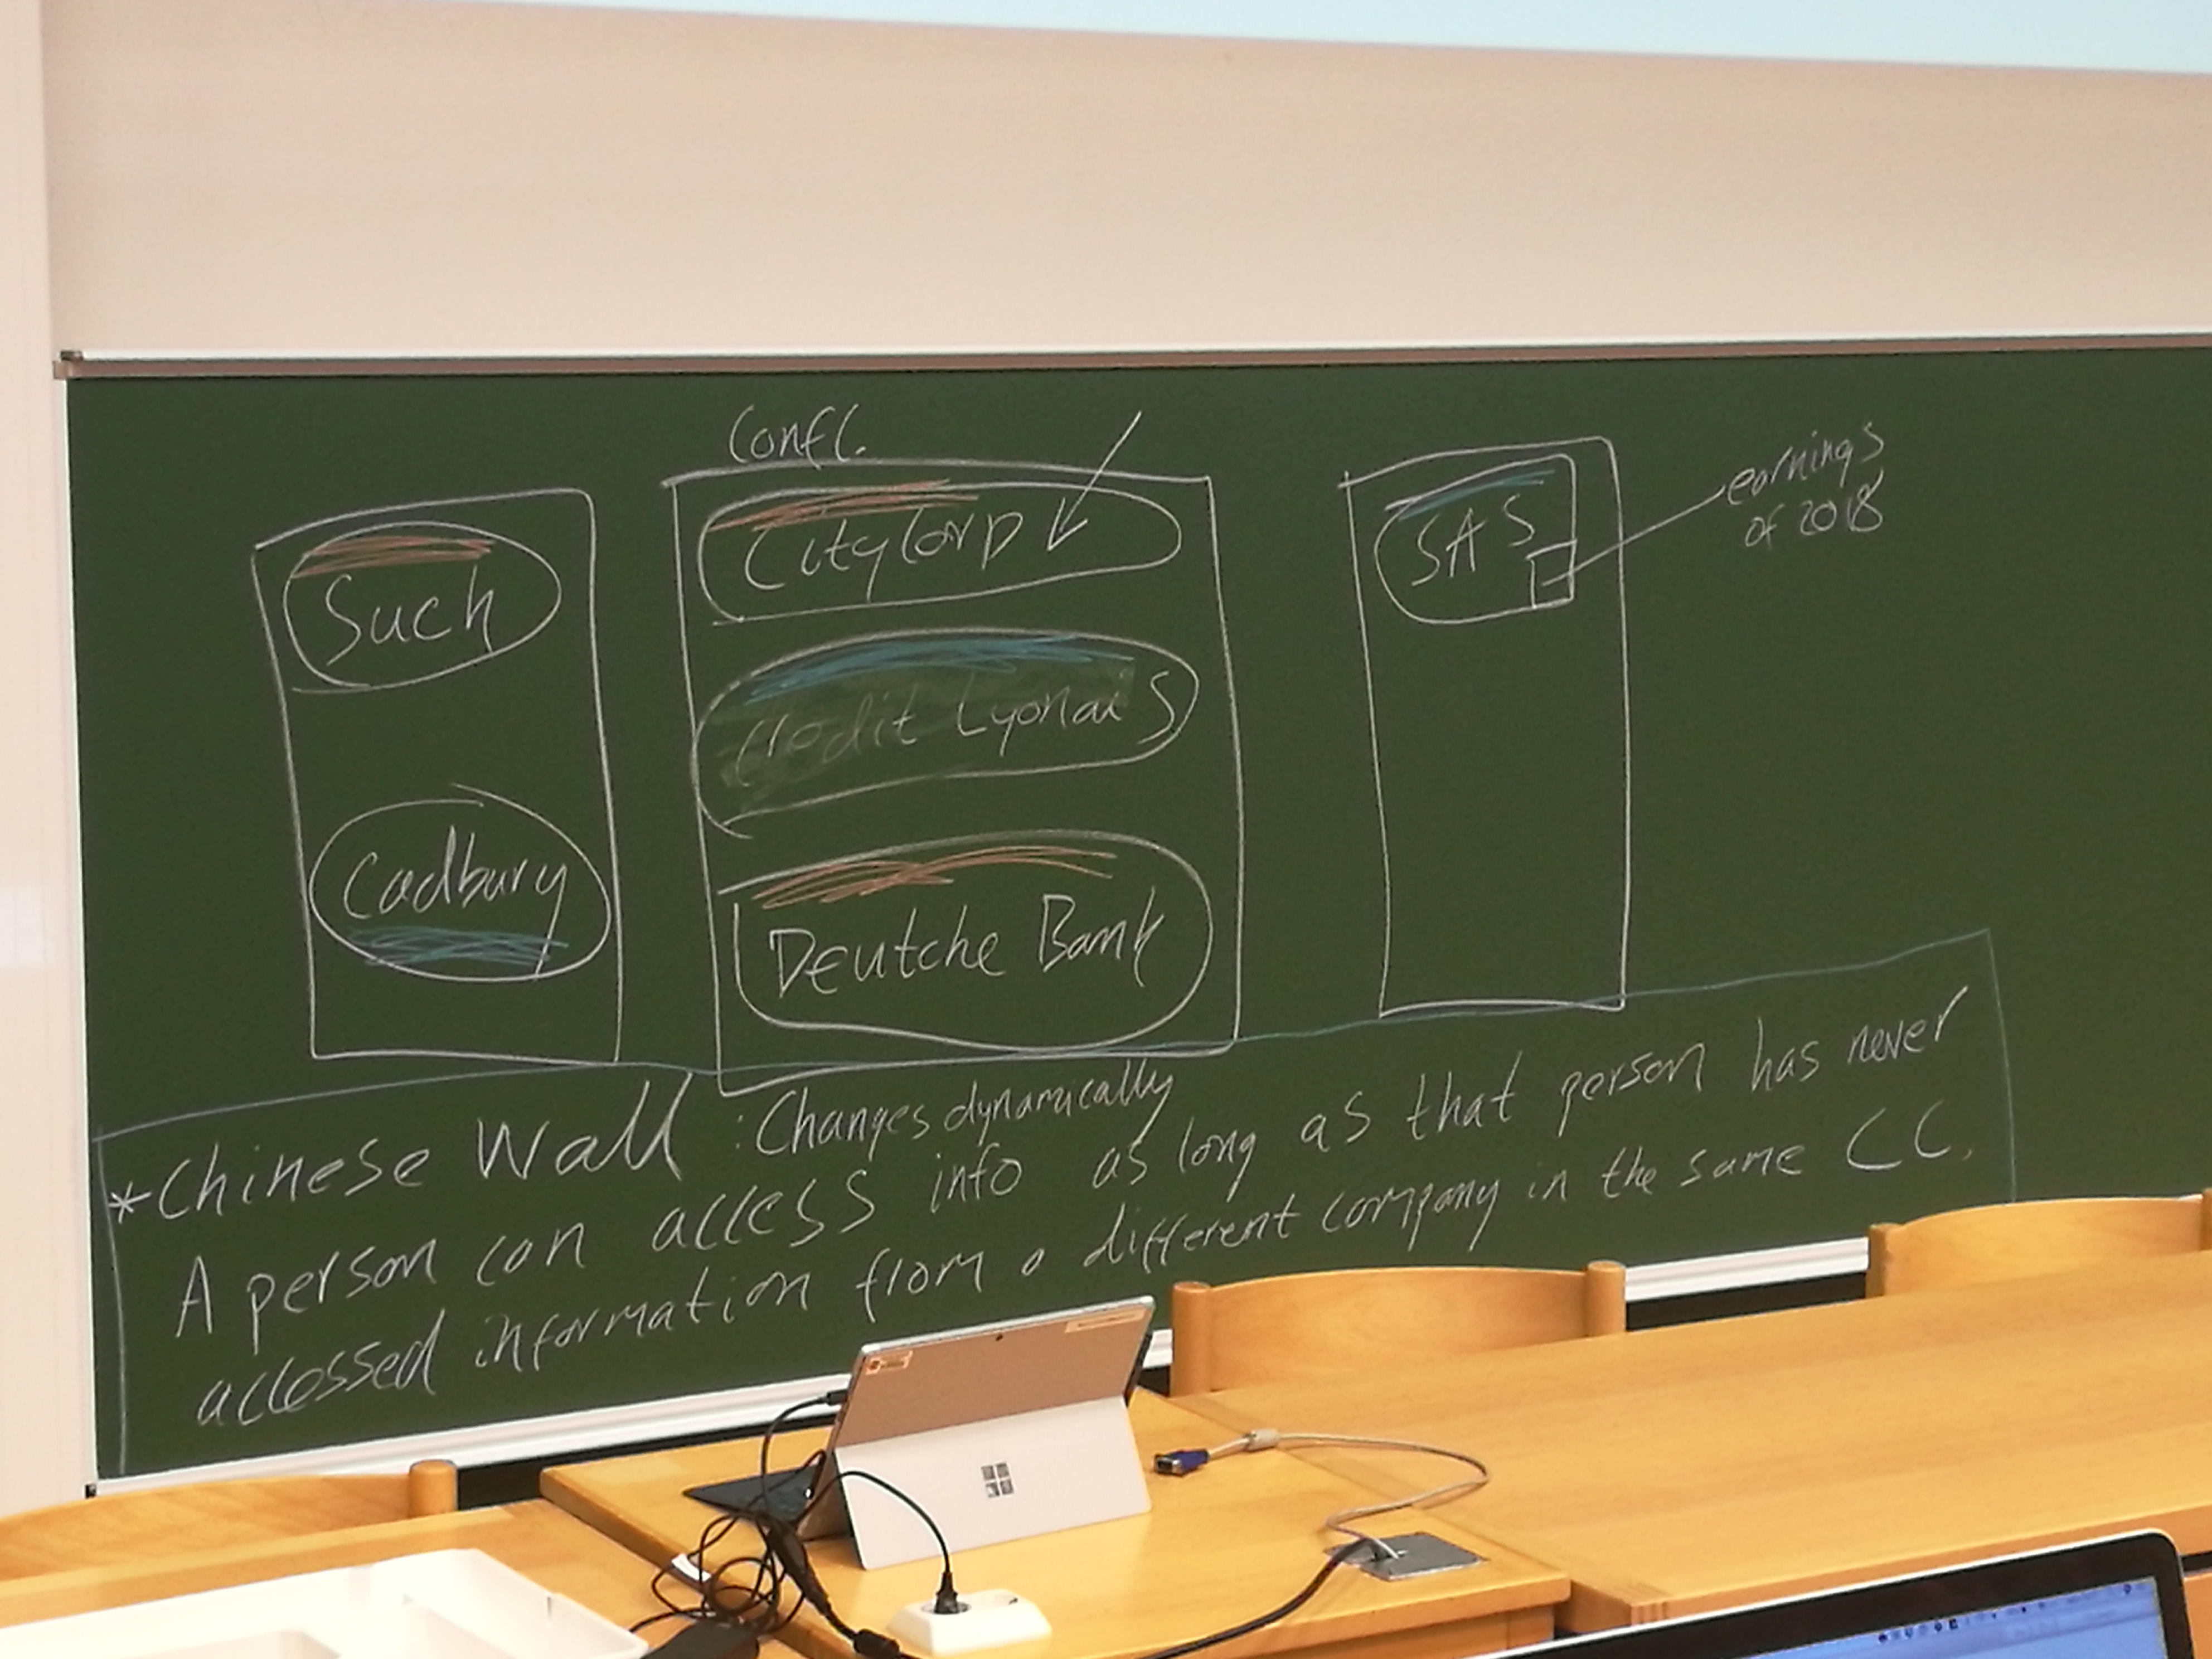 Confl.
Such
Cadbury
CityCorp
Credit Lyonais
Deutche Bank
SAS
earnings
of 2018
*Chinese Wall : Changes dynamically
A person can access info as long as that person has never
accessed information from a different company in the same CC.